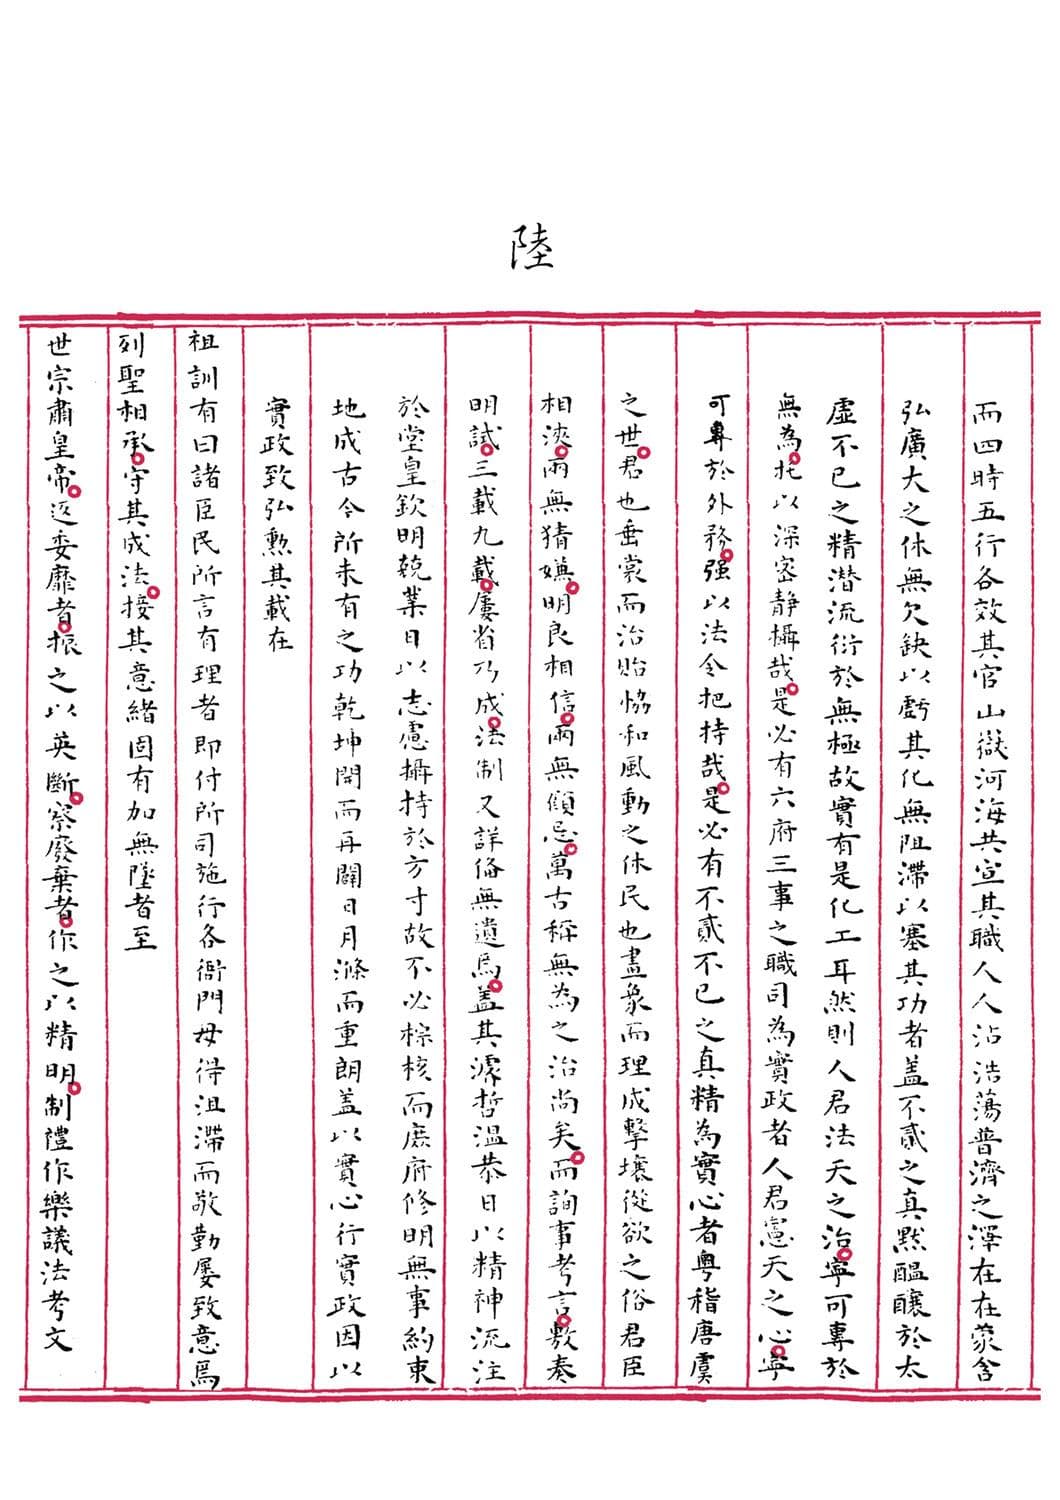 陸
而四時五行各效其官山嶽河海共宣其職人人沾浩蕩普濟之澤在在蒙含
弘廣大之休無欠缺以虧其化無阻滯以塞其功者盖不貳之真默醞釀於太
虛不已之精潜流衍於無極故實有是化工耳然則人君法天之治寧可專於
無為托以深密静攝哉是必有六府三事之職司為實政者人君憲天之心寧
可專於外務强以法令把持哉是必有不貳不已之真精為實心者粤稽唐虞
之世君也垂裳而治貽恊和風動之休民也畫象而理成擊壤從欲之俗君臣
相浹兩無猜嫌明良相信兩無傾忌萬古稱無為之治尚矣而詢事考言敷奏
明試三載九載屢省乃成法制又詳俻無遺焉盖其濬哲温恭日以精神流注
於堂皇欽明兢業日以志慮攝持於方寸故不必棕核而庶府修明無事約束
地成古今所未有之功乾坤開而再闢日月滌而重朗盖以實心行實政因以
實政致弘勲其載在
祖訓有曰諸臣民所言有理者即付所司施行各衙門毋得沮滯而敬勤屡致意焉
列聖相承守其成法接其意緒固有加無墜者至
世宗肅皇帝返委靡者振之以英斷察廢棄者作之以精明制禮作樂議法考文